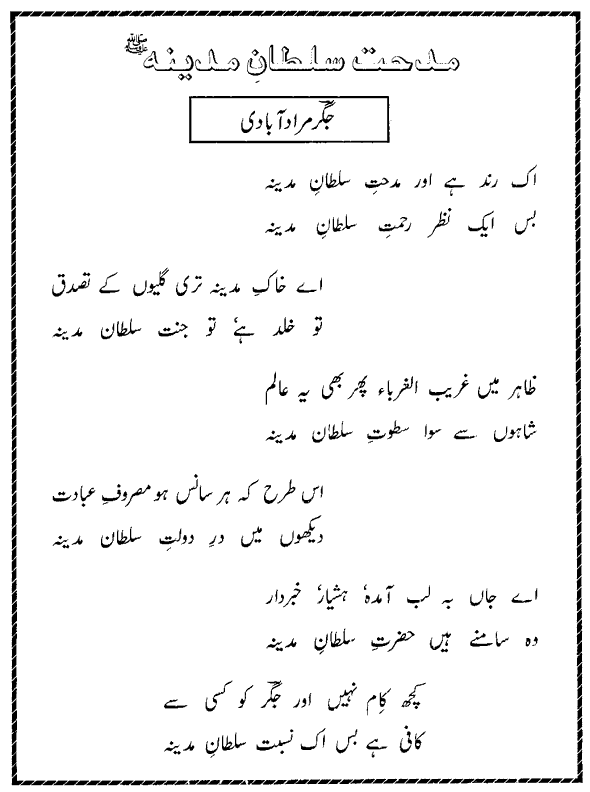 مدحت سلطانِ مدینہ ﷺ
جگرؔ مرادآبادی
اک رند ہے اور مدحتِ سلطانِ مدینہ
بس ایک نظر رحمتِ سلطانِ مدینہ
اے خاکِ مدینہ تری گلیوں کے تصدق
تو خلد ہے، تو جنت سلطان مدینہ
ظاہر میں غریب الغرباء پھر بھی یہ عالم
شاہوں سے سوا سطوتِ سلطان مدینہ
اس طرح کہ ہر سانس ہو مصروفِ عبادت
دیکھوں میں درِ دولتِ سلطان مدینہ
اے جاں بہ لب آمدہ، ہشیار، خبردار
وہ سامنے ہیں حضرتِ سلطانِ مدینہ
کچھ کام نہیں اور جگرؔ کو کسی سے
کافی ہے بس اک نسبت سلطانِ مدینہ